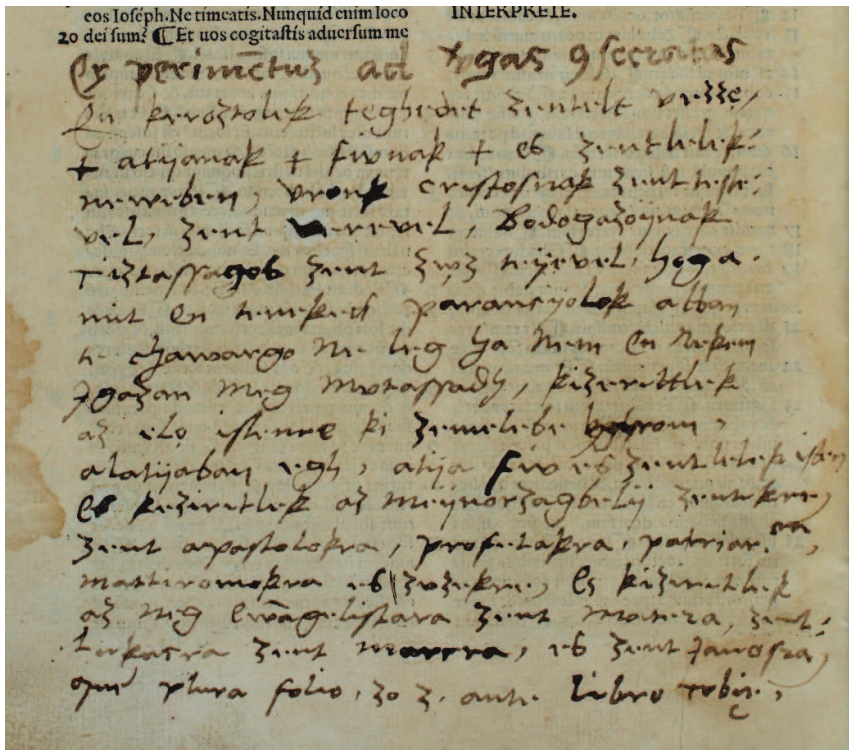 eos Ioséph. Ne timeatis. Nunquid enim loco
INTERPRETE.
20 dei sum? ⁋ Et uos cogitastis aduersum me
Experimētuʒ ad ꝯsecratas
En keroztolek teghedet zentelt vezze,
+ atijanak + fiwnak + es zentlelek:
neweben, vronk cristosnak zent teste:
vel, zent verevel, Bodogazoijnak
tiztassagos zent zwz teijevel, hoga.
mit en teneked parancijolok abban
te chawargo ne leg ha nem en nekem
Igazan meg mutassadh, kizeritlek
az elo istenre ki zemelebe harom,
alatijaban egh, atija fiw es zentlelek isten
Es keziritlek az meijnorzagbelij zentekre,
zent apastolokra, profetakra, patriar.cra,
martiromokra es szvzekre, Es kiziritlek
az neg Ewāgelistara zent Mateza, zent:
Lukacra zent marcra, es zent Janosra,
que plura folio, zo z. ante libro tobie,